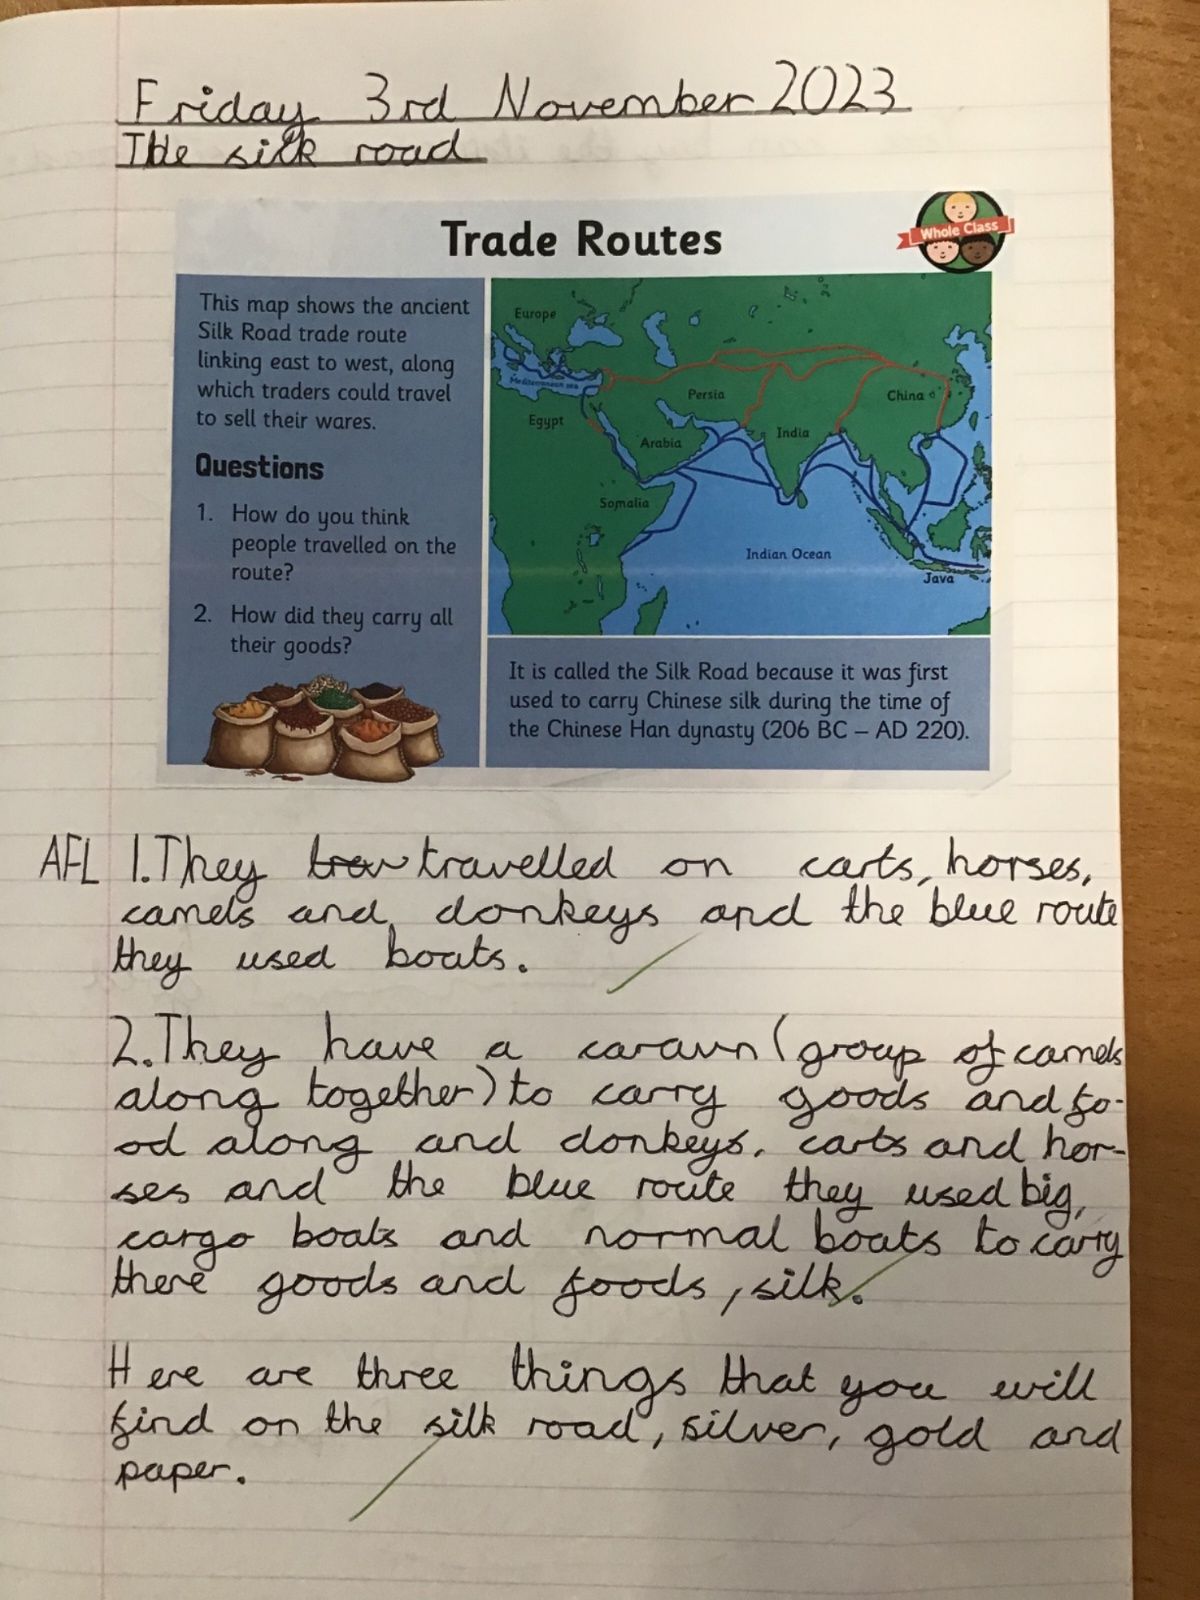 Friday 3rd November 2023
The silk road
Trade Routes
Whole Class
This map shows the ancient
Silk Road trade route
linking east to west, along
which traders could travel
to sell their wares.
Questions
1. How do you think
people travelled on the
route?
2. How did they carry all
their goods?
Europe
Mediterranean sea
Persia
China
Egypt
Arabia
India
Somalia
Indian Ocean
Java
It is called the Silk Road because it was first
used to carry Chinese silk during the time of
the Chinese Han dynasty (206 BC – AD 220).
AFL 1. They trav travelled on carts, horses,
camels and donkeys and the blue route
they used boats.
2. They have a caravn (group of camels
along together) to carry goods and fo-
od along and donkeys, carts and hor-
ses and the blue route they used big,
cargo boats and normal boats to carry
there goods and foods, silk.
Here are three things that you will
find on the silk road, silver, gold and
paper.